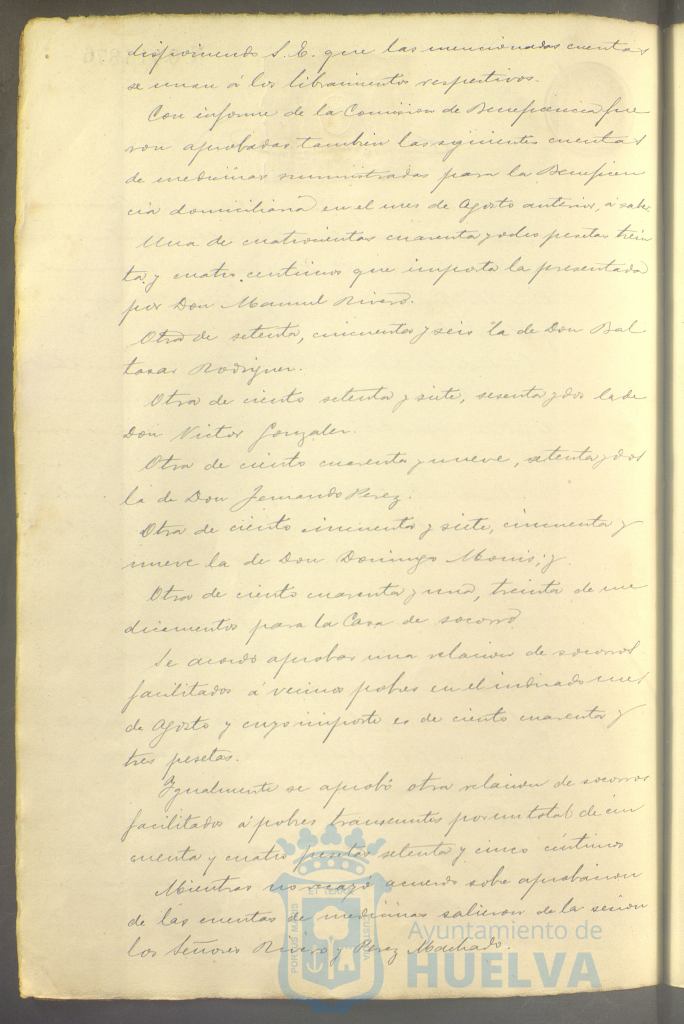 disponiendo S. E. que las mencionadas cuentas
se unan á los libramientos respectivos.
Con informe de la Comision de Beneficencia fue
ron aprobadas tambien las siguientes cuentas
de medicinas suministradas para la Beneficen
cia domiciliaria en el mes de Agosto anterior, á saber
Una de cuatrocientas cuarenta y ocho pesetas trein
ta y cuatro centimos que importa la presentada
por Don Manuel Rivero.
Otra de setenta, cincuenta y seis la de Don Bal
tasar Rodriguez.
Otra de ciento setenta y siete, sesenta y dos la de
Don Victor Gonzalez.
Otra de ciento cuarenta y nueve, setenta y dos
la de Don Fernando Perez.
Otra de ciento cincuenta y siete, cincuenta y
nueve la de Don Domingo Monis; y
Otra de ciento cuarenta y una, treinta de me
dicamentos para la Casa de socorro.
Se acordó aprobar una relacion de socorros
facilitados á vecinos pobres en el indicado mes
de Agosto y cuyo importe es de ciento cuarenta y
tres pesetas.
Igualmente se aprobó otra relacion de socorros
facilitados á pobres transeuntes por un total de cin
cuenta y cuatro pesetas setenta y cinco céntimos
Mientras no recayó acuerdo sobre aprobacion
de las cuentas de medicinas salieron de la sesion
los Señores Rivero y Perez Machado.
Ayuntamiento de
HUELVA